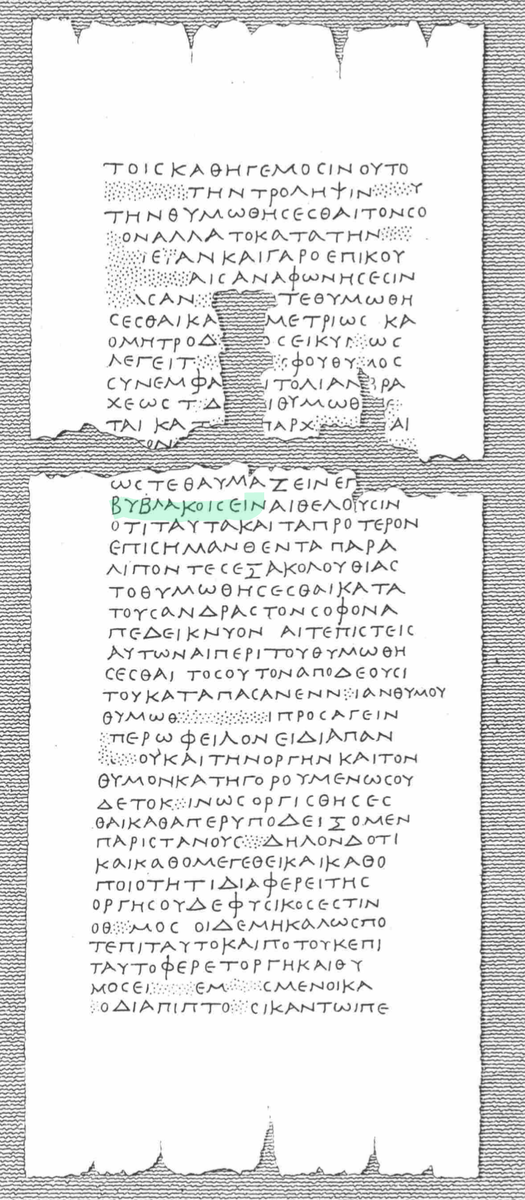 ΤΟΙϹΚΑΘΗΓΕΜΟϹΙΝΟΥΤΟ
ΤΗΝΤΡΟΛΗΨΙΝ Υ
ΤΗΝΘΥΜΩΘΗϹΕϹΘΑΙΤΟΝϹΟ
ΟΝΑΛΛΑΤΟΚΑΤΑΤΗΝ
ΙΕ ΑΝΚΑΙΓΑΡΟΕΠΙΚΟΥ
ΑΙϹΑΝΑΦΩΝΗϹΕϹΙΝ
ϹΑΝ ΤΕΘΥΜΩΘΗ
ϹΕϹΘΑΙΚΑ ΜΕΤΡΙΩϹ ΚΑ
ΟΜΗΤΡΟΔ ϹΕΙΚΥΓ ΩϹ
ΛΕΓΕΙΤ ΦΟΥΘΥ ΟϹ
ϹΥΝΕΜΦΑ ΙΤΟΛΙΑΝ ΡΑ
ΧΕΩϹ Τ Δ ΙΘΥΜΩΘ Ε
ΤΑΙ ΚΑΤ ΠΑΡΧ ΑΙ
ΩΝ
ΩϹΤΕΘΑΥΜΑΖΕΙΝΕΠ
ΒΥΒΛΑΚΟΙϹΕΙΝΑΙΘΕΛΟΥϹΙΝ
ΟΤΙΤΑΥΤΑΚΑΙΤΑΠΡΟΤΕΡΟΝ
ΕΠΙϹΗΜΑΝΘΕΝΤΑ ΠΑΡΑ
ΛΙΠΟΝΤΕϹΕΞΑΚΟΛΟΥΘΙΑϹ
ΤΟΘΥΜΩΘΗϹΕϹΘΑΙΚΑΤΑ
ΤΟΥϹΑΝΔΡΑϹΤΟΝϹΟΦΟΝΑ
ΠΕΔΕΙΚΝΥΟΝ ΑΙΤΕΠΙϹΤΕΙϹ
ΑΥΤΩΝΑΙΠΕΡΙΤΟΥΘΥΜΩΘΗ
ϹΕϹΘΑΙ ΤΟϹΟΥΤΟΝΑΠΟΔΕΟΥϹΙ
ΤΟΥΚΑΤΑΠΑϹΑΝΕΝΝ ΙΑΝΘΥΜΟΥ
ΘΥΜΩΘ ΙΠΡΟϹΑΓΕΙΝ
ΠΕΡΩΦΕΙΛΟΝΕΙΔΙΑΠΑΝ
ΟΥΚΑΙΤΗΝΟΡΓΗΝΚΑΙΤΟΝ
ΘΥΜΟΝΚΑΤΗΓΟΡΟΥΜΕΝΩϹΟΥ
ΔΕΤΟΚ ΙΝΩϹΟΡΓΙϹΘΗϹΕϹ
ΘΑΙΚΑΘΑΠΕΡΥΠΟΔΕΙΞΟΜΕΝ
ΠΑΡΙϹΤΑΝΟΥϹ ΔΗΛΟΝΔΟΤΙ
ΚΑΙΚΑΘΟΜΕΓΕΘΕΙΚΑΙΚΑΘΟ
ΠΟΙΟΤΗΤΙΔΙΑΦΕΡΕΙΤΗϹ
ΟΡΓΗϹΟΥΔΕΦΥϹΙΚΟϹΕϹΤΙΝ
ΟΘ ΜΟϹ ΟΙΔΕΜΗΚΑΛΩϹΠΟ
ΤΕΠΙΤΑΥΤΟΚΑΙΠΟΤΟΥΚΕΠΙ
ΤΑΥΤΟΦΕΡΕΤΟΡΓΗΚΑΙΘΥ
ΜΟϹΕΙ ΕΜ ϹΜΕΝΟΙΚΑ
ΟΔΙΑΠΙΠΤΟ ϹΙΚΑΝΤΩΙΠΕ